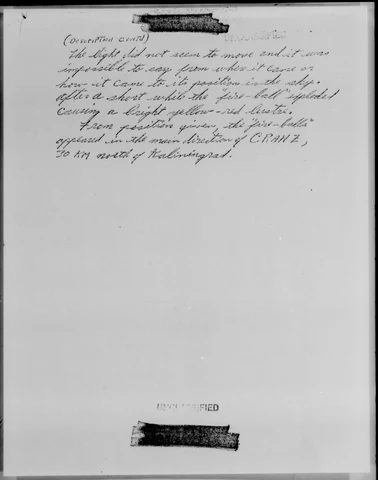 UNCLASSIFIED
The light did not seem to move and it was
impossible to say from where it came or
how it came to its position in the sky.
After a short while the "fire-ball" exploded
causing a bright yellow-red
From position given, the "fire-balls"
appeared in the main direction of CRANZ,
30 KM north of Kaliningrad.
UNCLASSIFIED